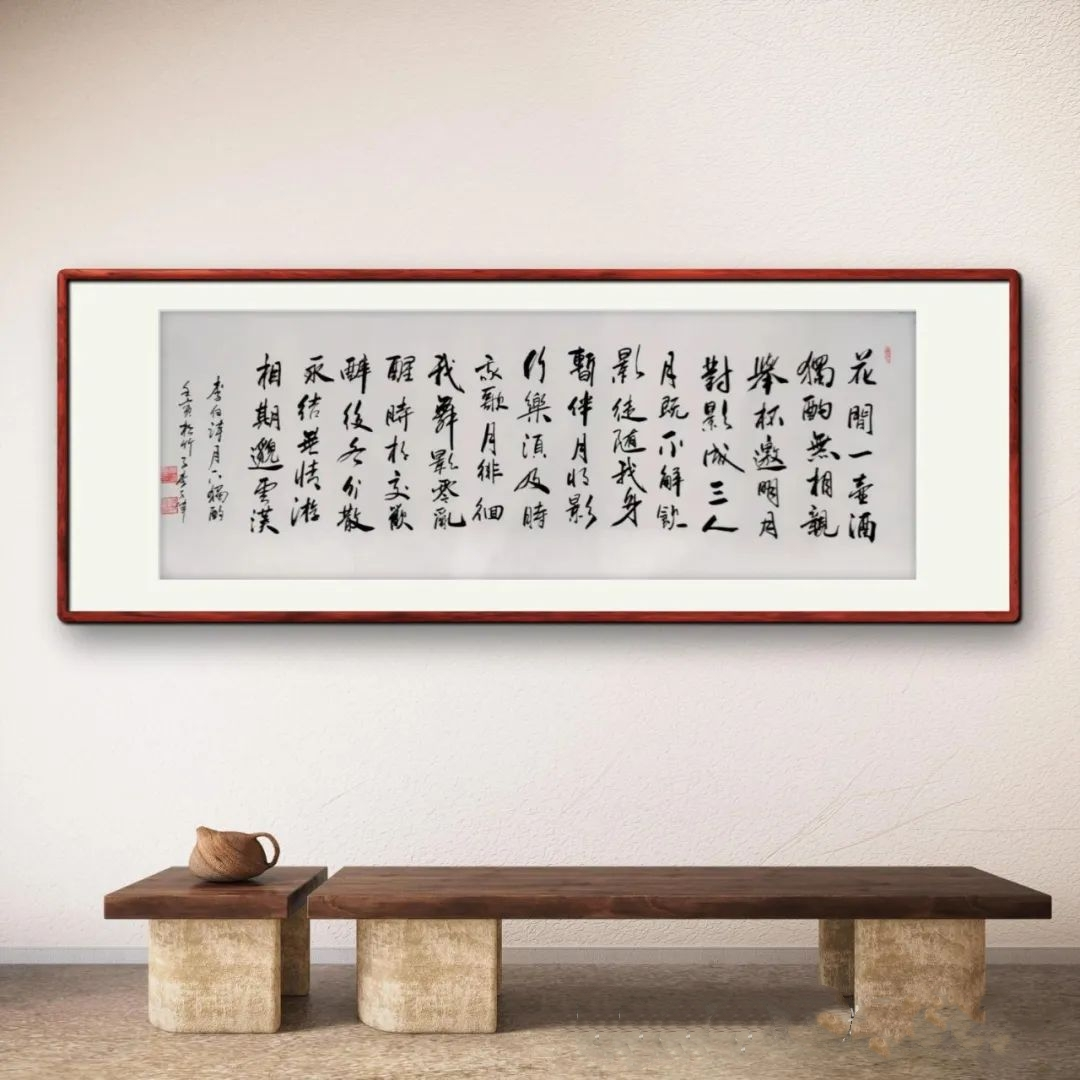 花間一壺酒
獨酌無相親
舉杯邀明月
對影成三人
月既不解飲
影徒隨我身
暫伴月將影
行樂須及時
我歌月徘徊
我舞影零亂
醒時相交歡
醉後各分散
永結無情游
相期邈雲漢
李白詩月下獨酌
壬寅松竹子李